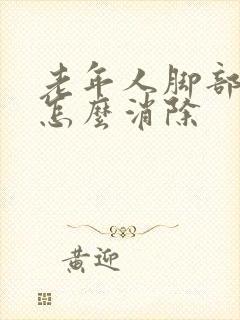 老年人脚部
怎麼消除
黄迎